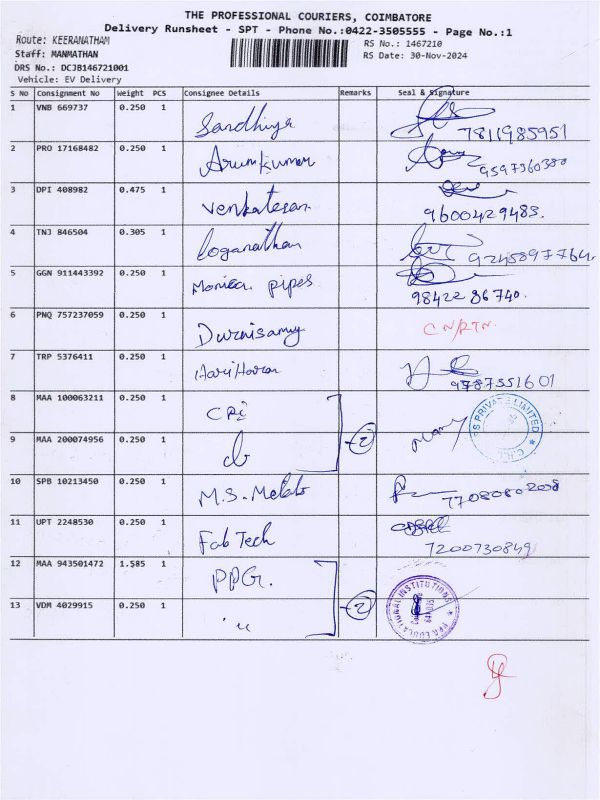 THE PROFESSIONAL COURIERS, COIMBATORE
Delivery Runsheet - SPT - Phone No.:0422-3505555 - Page No.:1
Route: KEERANATHAM
RS No.: 1467210
Staff: MANMATHAN
RS Date: 30-Nov-2024
DRS No.: DCJB146721001
Vehicle: EV Delivery
S No Consignment No Weight PCS Consignee Details Remarks Seal & Signature
1 VNB 669737 0.250 1 Sandhiya 7811985951
2 PRO 17168482 0.250 1 Arumkumar 9597360380
3 DPI 408982 0.475 1 Venkatesan 9600429483.
4 TNJ 846504 0.305 1 Loganathan 9245897764.
5 GGN 911443392 0.250 1 Monica pipes 98422 86740.
6 PNQ 757237059 0.250 1 Duraisamy CN/RTN
7 TRP 5376411 0.250 1 Hari Haran 9787551601
8 MAA 100063211 0.250 1 CRI
9 MAA 200074956 0.250 1 2
10 SPB 10213450 0.250 1 M.S. 77080802008
11 UPT 2248530 0.250 1 Fab Tech 7200730849
12 MAA 943501472 1.585 1 PPG.
13 VDM 4029915 0.250 1 2
PPG EDUCATIONAL INSTITUTIONS